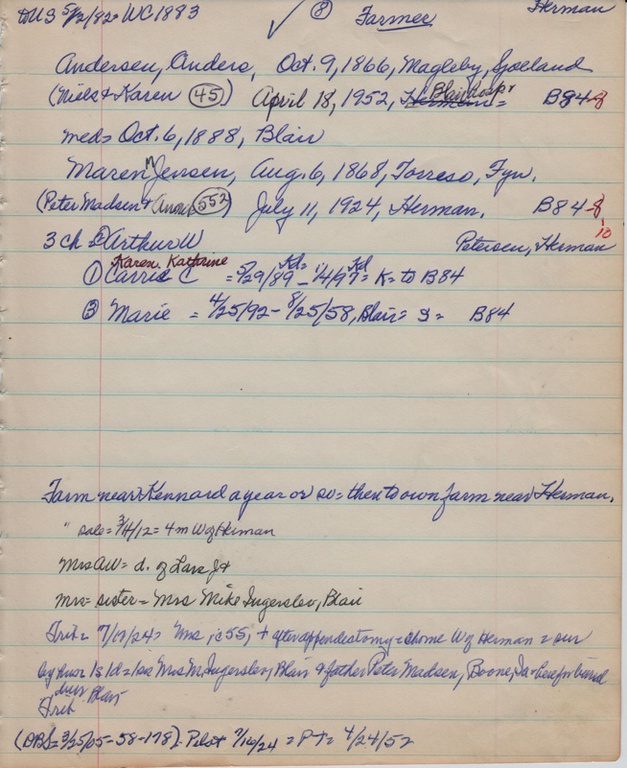 to US 5/2/82 = WC 1883 ✓ ⑧ Farmer Herman
Andersen, Anders, Oct. 9, 1866, Magleby, Sjoelland
(Niels & Karen (45) April 18, 1952, Herman = Blair hosp B84-8
md = Oct. 6, 1888, Blair
Maren M Jensen, Aug. 6, 1868, Torreso, Fyn.
(Peter Madsen & Anna (552) July 11, 1924, Herman. B84-8
10
3 ch ② Arthur W Petersen, Herman
Karen Kathrine Kd Kd
① Carrie C = 5/29/89 - 1/4/97 = K = to B84
③ Marie = 4/25/92 - 8/25/58, Blair = S = B84
Farm near Kennard a year or so = then to own farm near Herman.
" sale = 3/4/12 = 4 m W of Herman
Mrs AW = d. of Lars
Mrs = sister = Mrs Mike Ingerslev, Blair
Trib = 7/17/24 = Mrs, is 55, + after appendectomy = at home W of Herman = sur
by hus 1s 1d = 1 sis Mrs M. Ingerslev, Blair & father Peter Madsen, Boone, Ia = buried
Blair
Trib
(DBS = 3/25/05 - 58 - 178). Pilot 7/16/24 = PT = 4/24/52